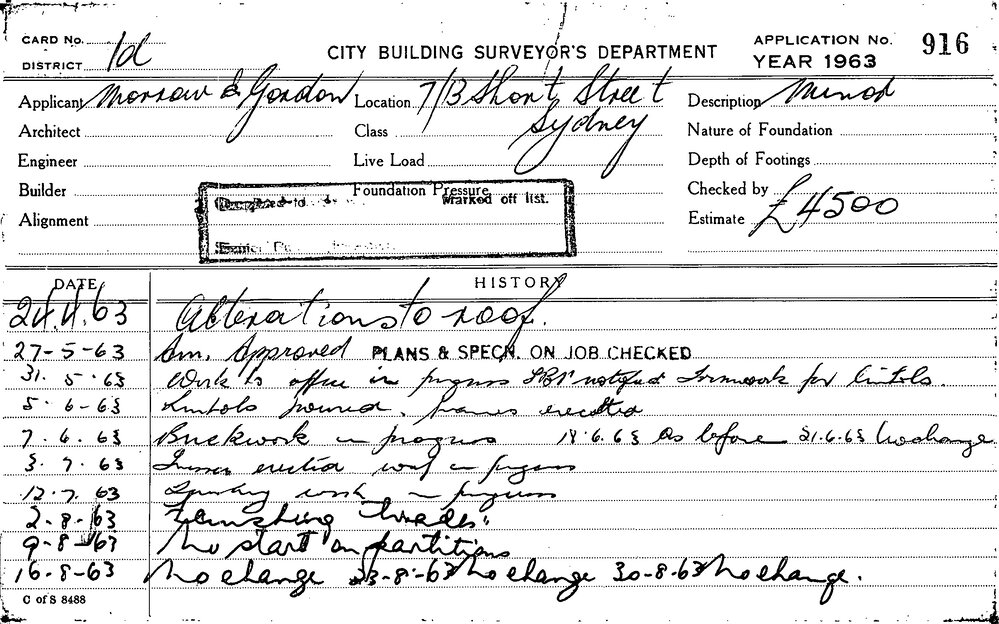 CARD No. 1d
DISTRICT
CITY BUILDING SURVEYOR'S DEPARTMENT
APPLICATION No. 916
YEAR 1963
Applicant Morrow & Gordon Location 7/13 Short Street Description Minor
Sydney
Architect Class Nature of Foundation
Engineer Live Load Depth of Footings
Builder Foundation Pressure Checked by
Marked off list.
Alignment Estimate £4500
DATE HISTORY
24.4.63 Alterations to roof.
27-5-63 Am. Approved PLANS & SPECN. ON JOB CHECKED
31. 5. 63 Work to office in progress notified Formwork for lintols.
5. 6-63 Lintols poured, frames erected
7. 6. 63 Brickwork in progress 18.6.63 As before 21.6.63 No change
3. 7. 63 erected roof in progress
12.7. 63 work in progress
2-8-63 Finishing trades.
9-8-63 No start on partitions
16-8-63 No change 23-8-63 No change 30-8-63 No change.
C of S 8488